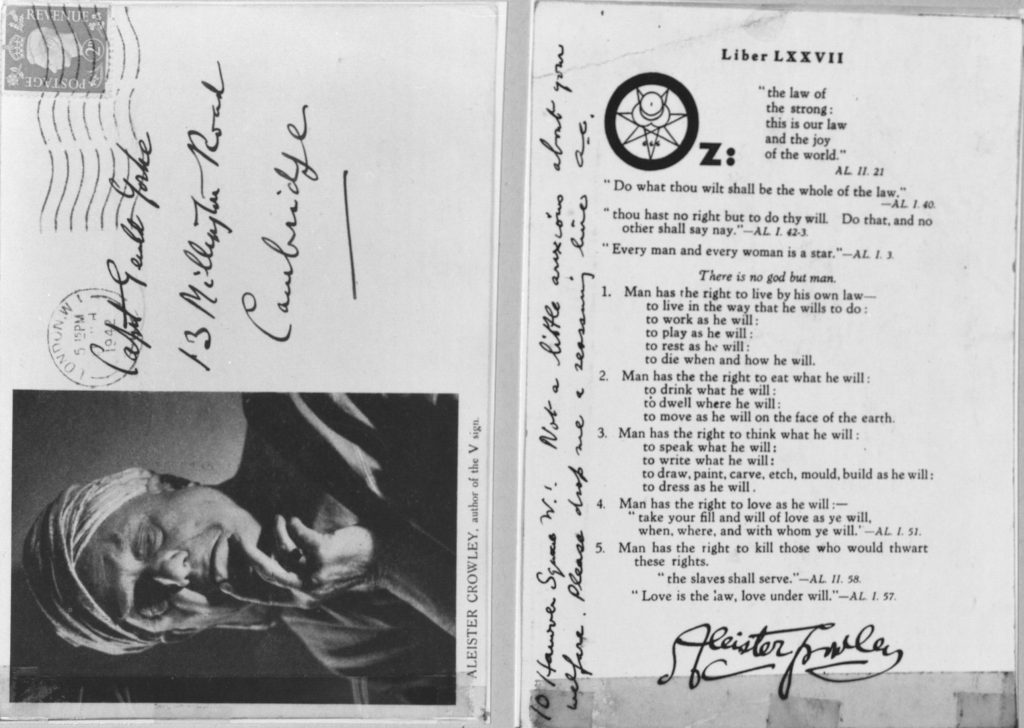 REVENUE
POSTAGE
LONDON.W
5 15PM
Capt Gerald Yorke
13 Millington Road
Cambridge
ALEISTER CROWLEY, author of the V sign.
10 Hanover Square W.1. Not a little anxious about your
welfare. Please drop me a reassuring line A.C.
Liber LXXVII
Oz:
666
"the law of
the strong:
this is our law
and the joy
of the world."
AL. II. 21
"Do what thou wilt shall be the whole of the law."
—AL. I. 40.
"thou hast no right but to do thy will. Do that, and no
other shall say nay."—AL. I. 42-3.
"Every man and every woman is a star."—AL. I. 3.
There is no god but man.
1. Man has the right to live by his own law—
to live in the way that he wills to do:
to work as he will:
to play as he will:
to rest as he will:
to die when and how he will.
2. Man has the the right to eat what he will:
to drink what he will:
to dwell where he will:
to move as he will on the face of the earth.
3. Man has the right to think what he will:
to speak what he will:
to write what he will:
to draw, paint, carve, etch, mould, build as he will:
to dress as he will.
4. Man has the right to love as he will:—
"take your fill and will of love as ye will,
when, where, and with whom ye will."—AL. I. 51.
5. Man has the right to kill those who would thwart
these rights.
"the slaves shall serve."—AL. II. 58.
"Love is the law, love under will."—AL. I. 57.
Aleister Crowley